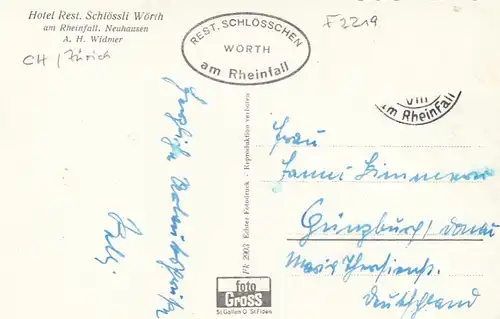 Hotel Rest. Schlössli Wörth
am Rheinfall. Neuhausen
A. H. Widmer
CH / Zürich
REST. SCHLÖSSCHEN
WÖRTH
am Rheinfall
F 2219
VIII
am Rheinfall
Herzliche
Frau
Fanni Zimmerer
Günzburg / Donau
Deutschland
Fk 2903 Echter Fotodruck - Reproduktion verboten
foto
GROSS
St.Gallen O St.Fiden